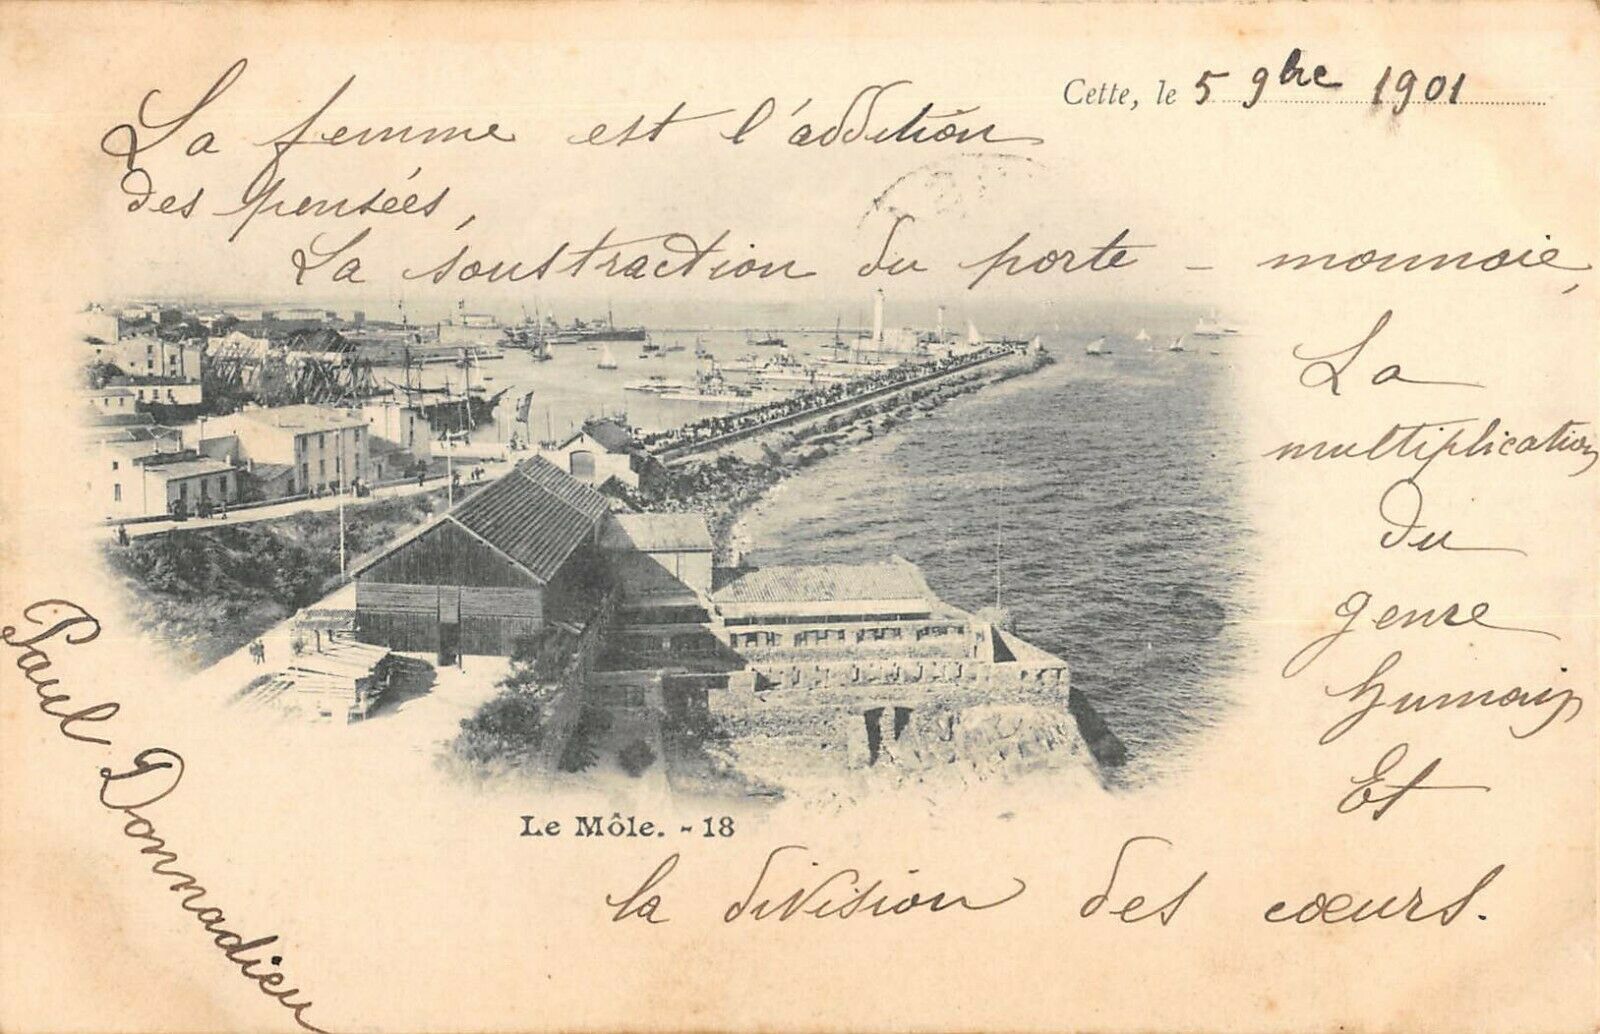 Cette, le 5 9bre 1901
La femme est l'addition
des pensées,
La soustraction du porte - monnaie,
La
multiplication
du
genre
humain
Et
la division des cœurs.
Paul Donnadieu
Le Môle. - 18